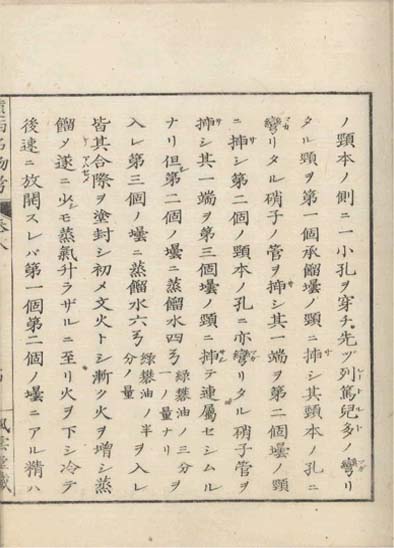 ノ頸本ノ側ニ一小孔ヲ穿チ先ヅ列篤兒多ノ彎リ
タル頸ヲ第一個承餾壜ノ頸ニ挿シ其頸本ノ孔ニ
彎リタル硝子ノ管ヲ挿シ其一端ヲ第二個壜ノ頸
ニ挿シ第二個ノ頸本ノ孔ニ亦彎リタル硝子管ヲ
挿シ其一端ヲ第三個壜ノ頸ニ挿テ連屬セシムル
ナリ但第二個ノ壜ニ蒸餾水四ヲ緑礬油ノ三分ヲ一ノ量ナリ
入レ第三個ノ壜ニ蒸餾水六ヲ緑礬油ノ半分ノ量ヲ入レ
皆其合際ヲ塗封シ初メ文火トシ漸ク火ヲ増シ蒸
餾メ遂ニ少モ蒸氣升ラザルニ至リ火ヲ下シ冷テ
後速ニ放開スレバ第一個第二個ノ壜ニアル精ハ
名物考 巻八
風雲堂藏